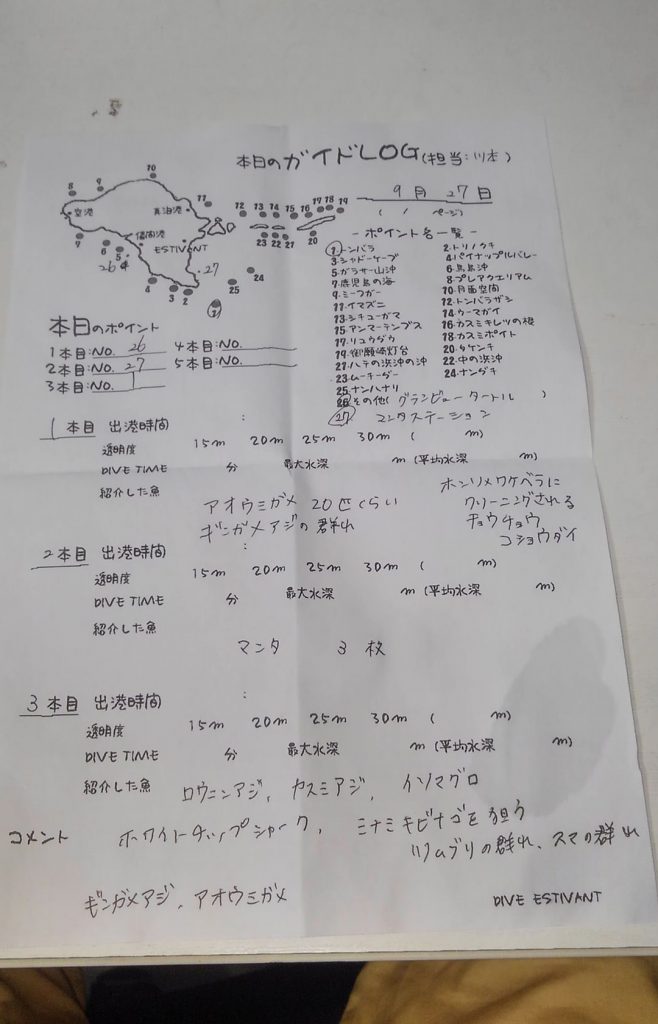 本日のガイドLOG(担当:川本)
9月 27日
( / ページ)
8 9 10
空港
真泊港
儀間港
ESTIVANT
11 12 13 14 15 16 17 18 19
23 22 21 20
7 6 5
26
27
4 3 2 1 25 24
-ポイント名一覧-
1.トンバラ
2.トリノクチ
3.シャドーケーブ
4.パイナップルバレー
5.ガラサー山沖
6.鳥島沖
7.鹿児島の海
8.プレアクエリアム
9.ミーフガー
10.月面空間
11.イマズニ
12.トンバラザシ
13.シチューガマ
14.ウーマガイ
15.アンマーテンプス
16.カスミキレツの根
17.リュウダウ
18.カスミポイント
19.御願崎灯台
20.タケンチ
21.ハテの浜沖の沖
22.中の浜沖
23.ムーチーダー
24.ナンダチ
25.ナンハナリ
26.その他(グランビュータートル)
27. マンタステーション
本日のポイント
1本目:NO. 26
4本目:NO.
2本目:NO. 27
5本目:NO.
3本目:NO. 1
1本目 出港時間 :
透明度 15m 20m 25m 30m ( m)
DIVE TIME 分 最大水深 m (平均水深 m)
紹介した魚
アオウミガメ 20匹くらい
ギンガメアジの群れ
ホンソメワケベラに
クリーニングされる
チョウチョウ
コショウダイ
2本目 出港時間 :
透明度 15m 20m 25m 30m ( m)
DIVE TIME 分 最大水深 m (平均水深 m)
紹介した魚
マンタ 3枚
3本目 出港時間 :
透明度 15m 20m 25m 30m ( m)
DIVE TIME 分 最大水深 m (平均水深 m)
紹介した魚 ロウニンアジ、カスミアジ、イソマグロ
コメント ホワイトチップシャーク、ミナミキビナゴを狙う
ツムブリの群れ、スマの群れ
ギンガメアジ、アオウミガメ
DIVE ESTIVANT